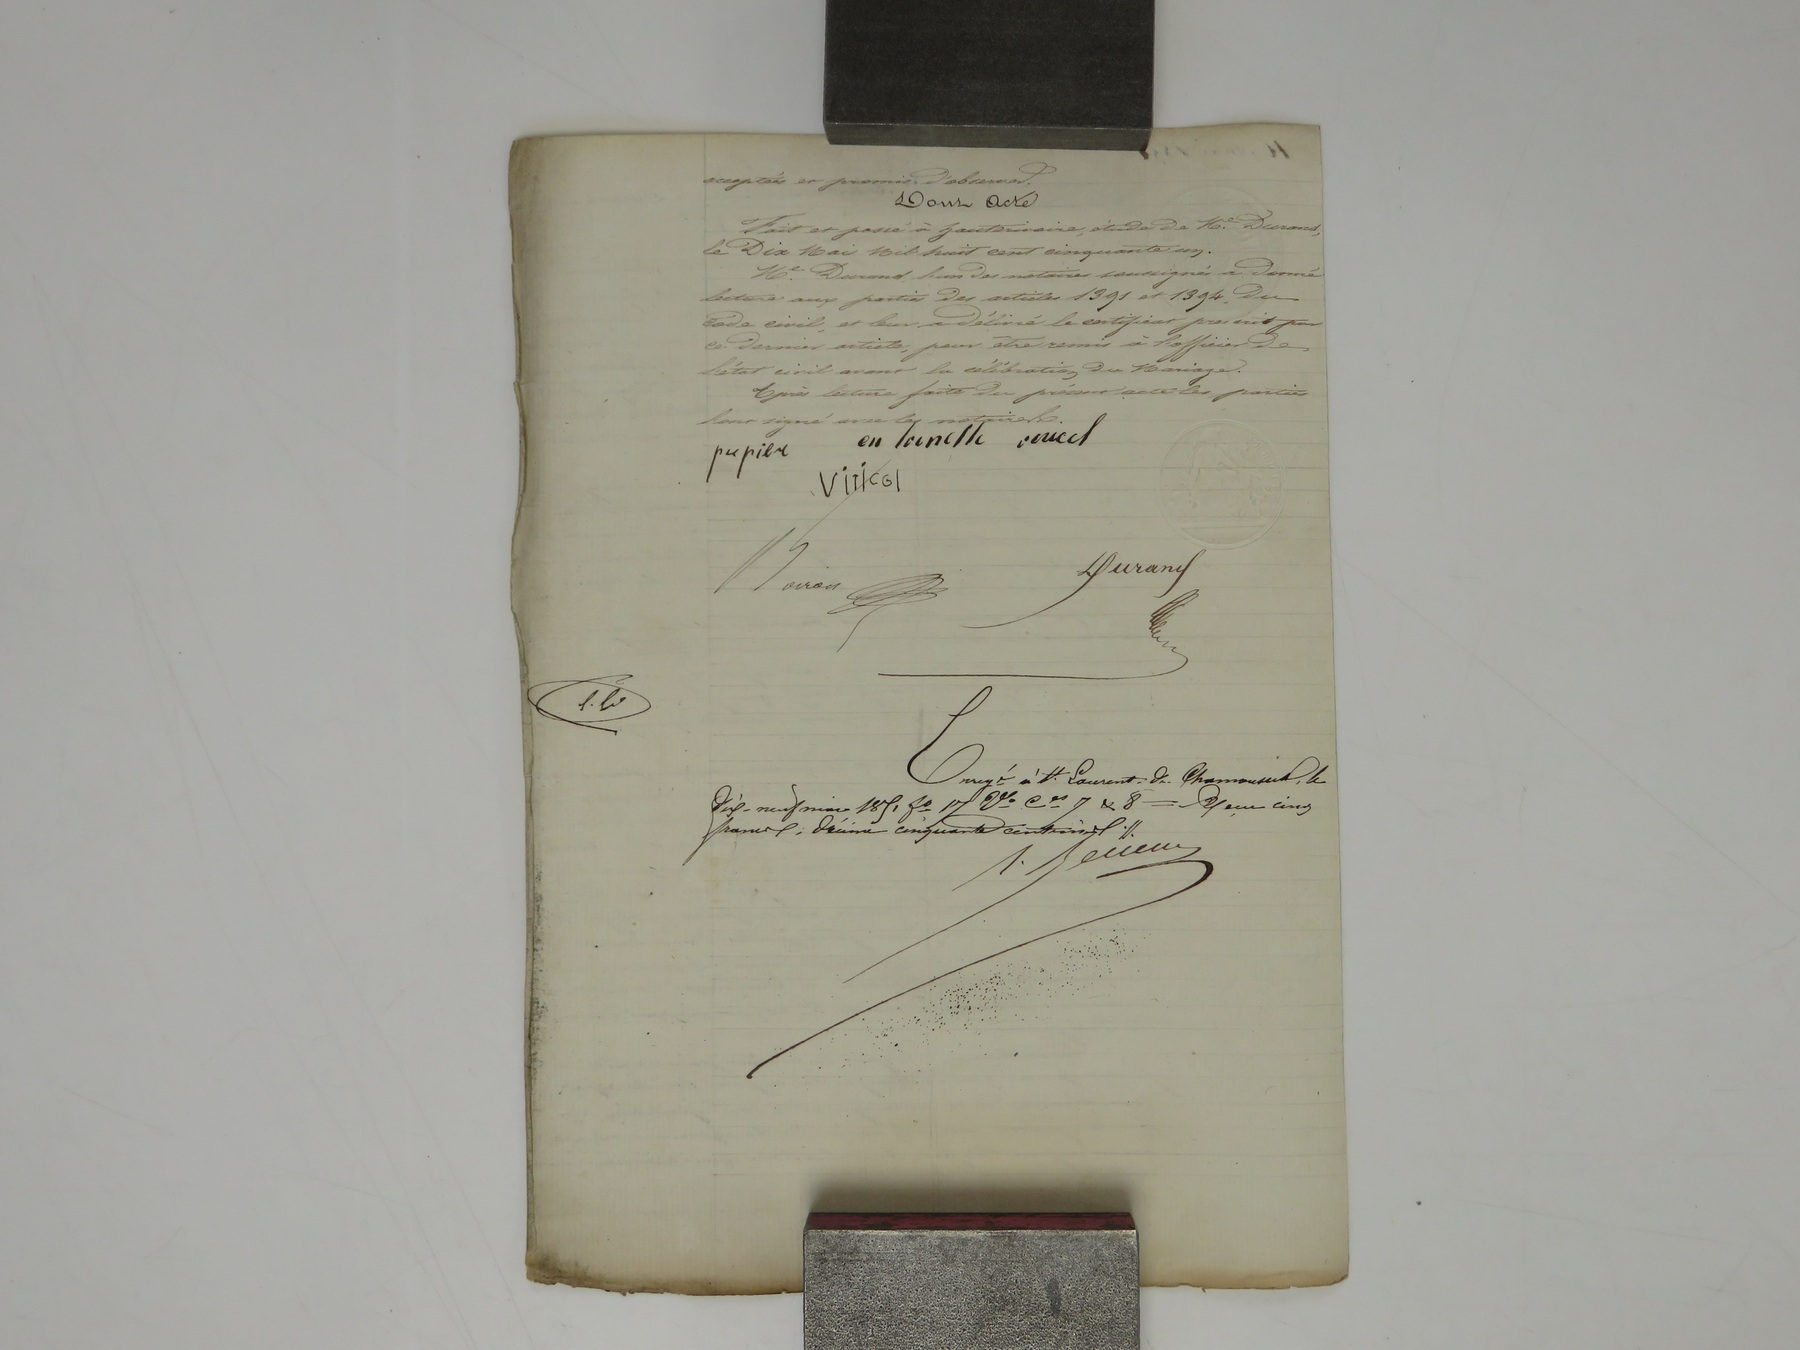 acceptées et promis d'observer.
Dont Acte
Fait et passé à hauterivoire, étude de Me. Durand,
le Dix Mai Mil huit cent cinquante un.
Me. Durand l'un des notaires soussignés a donné
lecture aux parties des articles 1391 et 1394 Du
Code civil, et leur a délivré le certificat prescrit par
ce dernier article, pour être remis à l'officier de
l'état civil avant la célébration du Mariage.
Après lecture faite du présent acte les parties
l'ont signé avec les notaires.
pupier en toinette
Durand
Enregé à St. Laurent de Chamousset, le
dix-neuf mai 1851 fo 17 Vo Ces 7 & 8 = Reçu cinq
francs, décime cinquante centimes //.